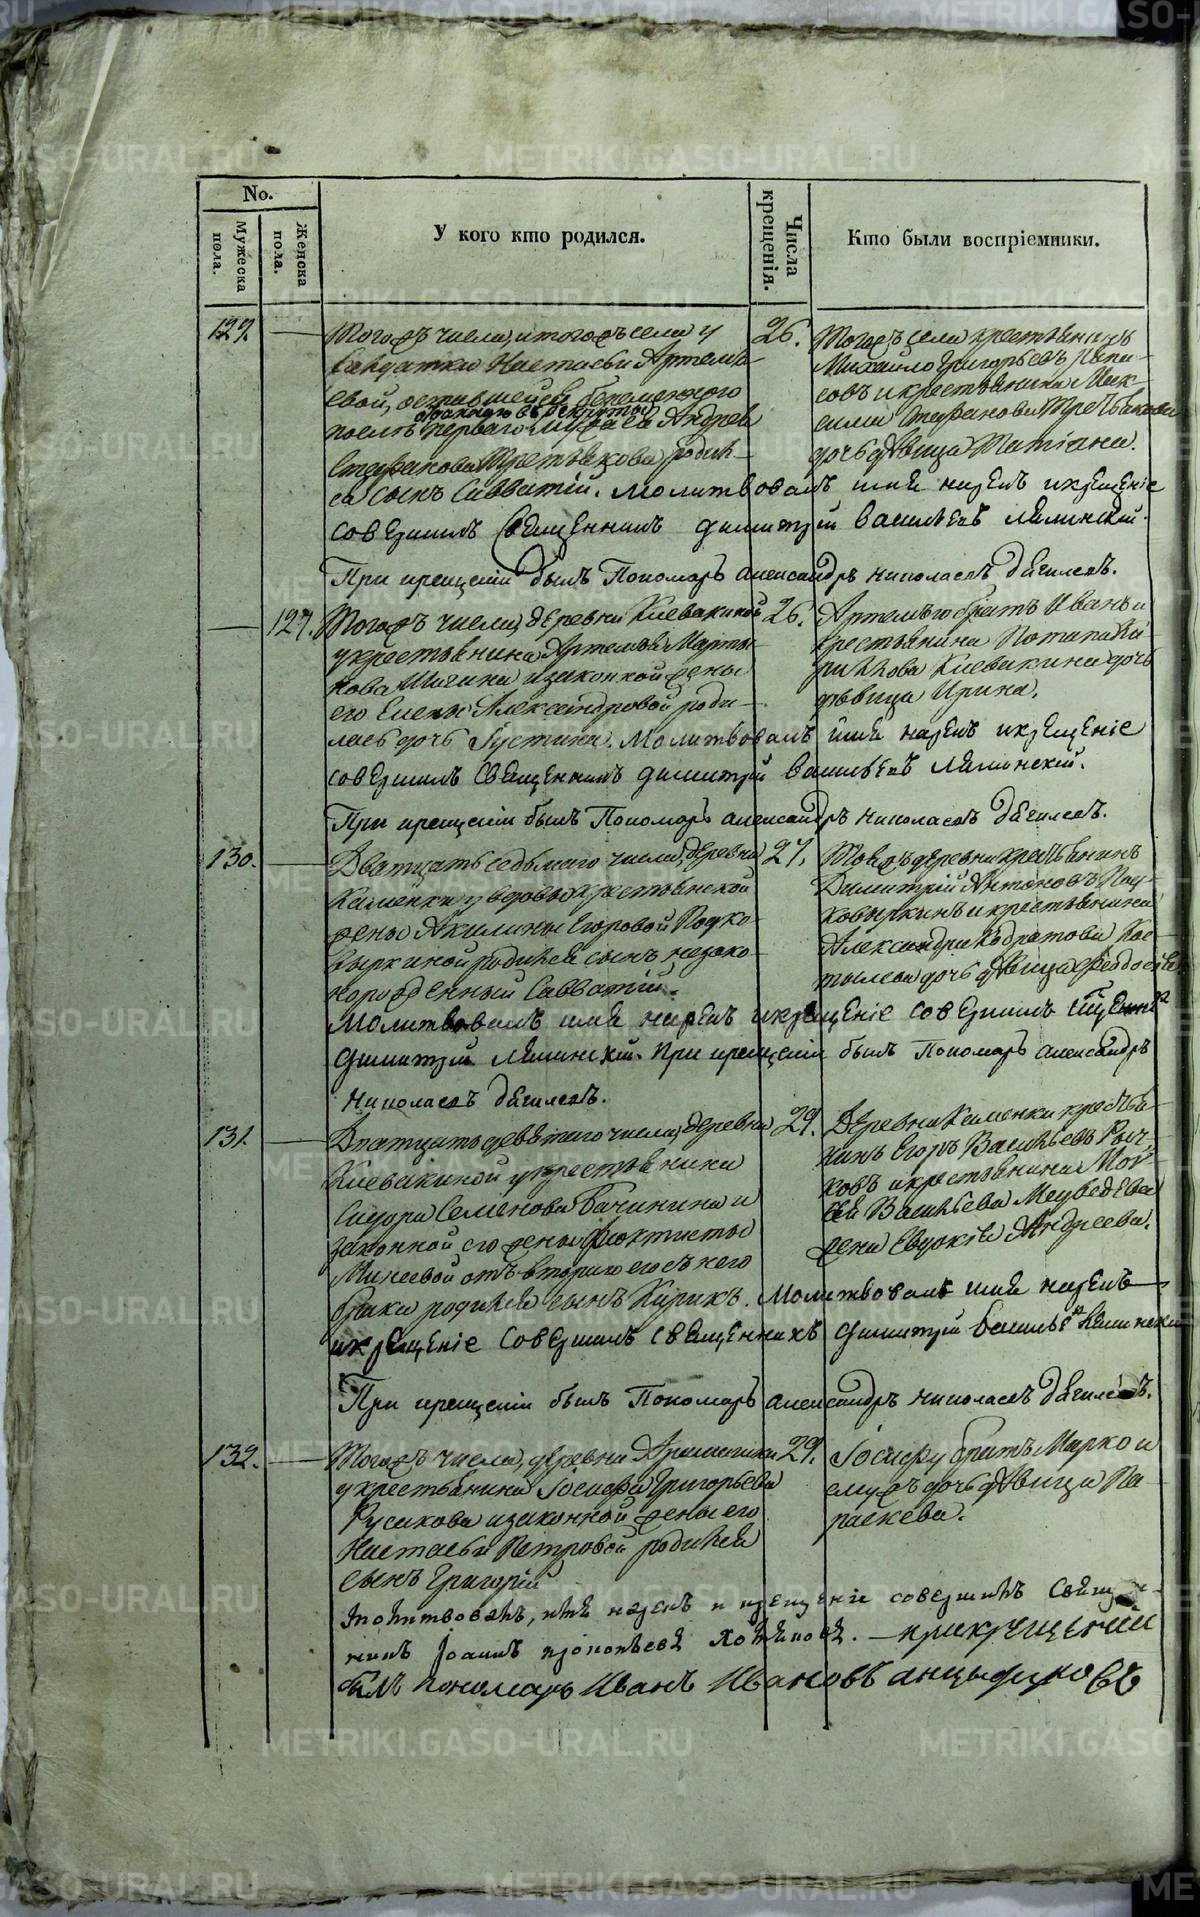 No.
Мужеска пола.
Женска пола.
У кого кто родился.
Числа крещенія.
Кто были воспріемники.
129.
Тогожъ числа, и тогожъ села у
салдатки Настасьи Артемь-
евой, оставшейся беременною
отданнаго въ рекруты
послѣ перваго мужа ея Андрея
Стефанова Третьякова родил-
ся сынъ Савватій. Молитвовалъ имя нарекъ и крещеніе
совершилъ Священникъ Димитрій Васильевъ Ляминскій.
При крещеніи былъ Пономарь Александръ Николаевъ Дягилевъ.
26.
Тогожъ села крестьянинъ
Михайло Григорьевъ
совъ и крестьянина Мак-
сима Стефанова Третьякова
дочь дѣвица Татіана.
127.
Тогожъ числа, деревни Киевакиной
у крестьянина Артемья Марты-
нова Шагина и законной жены
его Елены Александровой роди-
лась дочь Густина. Молитвовалъ имя нарекъ и крещеніе
совершилъ Священникъ Димитрій Васильевъ Ляминскій.
При крещеніи былъ Пономарь Александръ Николаевъ Дягилевъ.
26.
Артемья братъ Иванъ и
крестьянина Потапа Ки-
рилова Киевакина дочь
дѣвица Ирина.
130.
Дватцать седьмаго числа, деревни
Каменки у вдовы крестьянской
жены Акилины Егоровой Подко-
выркиной родился сынъ незако-
норожденный Савватій.
Молитвовалъ имя нарекъ и крещеніе совершилъ Священникъ
Димитрій Ляминскій. При крещеніи былъ Пономарь Александръ
Николаевъ Дягилевъ.
27.
Тойжъ деревни крестьянинъ
Димитрій Антоновъ Под-
ковыркинъ и крестьянина
Александра Кодратова Кос-
тылева дочь дѣвица Феодосія
131.
Дватцать девятаго числа, деревни
Киевакиной у крестьянина
Сидора Семенова Бачинина и
законной его жены Феоктисты
Минеевой отъ втораго ее съ него
брака родился сынъ Кирикъ. Молитвовалъ имя нарекъ
и крещеніе совершилъ Священникъ Димитрій Васильевъ Ляминскій
При крещеніи былъ Пономарь Александръ Николаевъ Дягилевъ.
29.
Деревни Каменки крестья-
нинъ Егоръ Васильевъ Рыч-
ковъ и крестьянина Мой-
сея Васильева Медведева
жена Евдокія Андреева.
132.
Тогожъ числа, деревни
у крестьянина Іосифа Григорьева
Русакова и законной жены его
Настасьи Петровой родился
сынъ Григорій
Молитвовалъ, имя нарекъ и крещеніе совершилъ Священ-
никъ Іоаннъ Прокопьевъ. — При крещеніи
былъ пономарь Иванъ Ивановъ Анцыферовъ
29.
Іосифу братъ Марко и
емужъ дочь дѣвица Па-
раскева.
METRIKI.GASO-URAL.RU